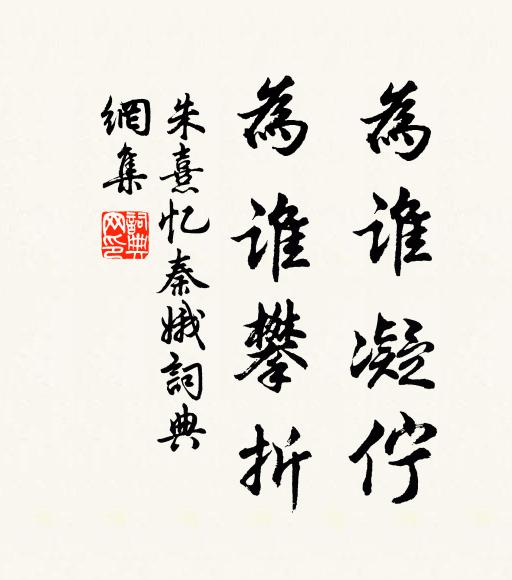 為誰凝伫
為誰攀折
朱熹忆秦娥詞典
網集
詞典網印